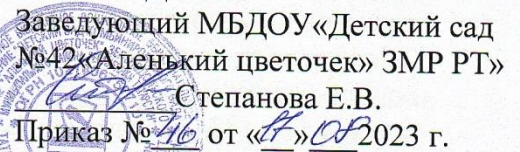 Заведующий МБДОУ«Детский сад
№42«Аленький цветочек» ЗМР РТ»
Степанова Е.В.
Приказ № 46 от «17» 08 2023 г.